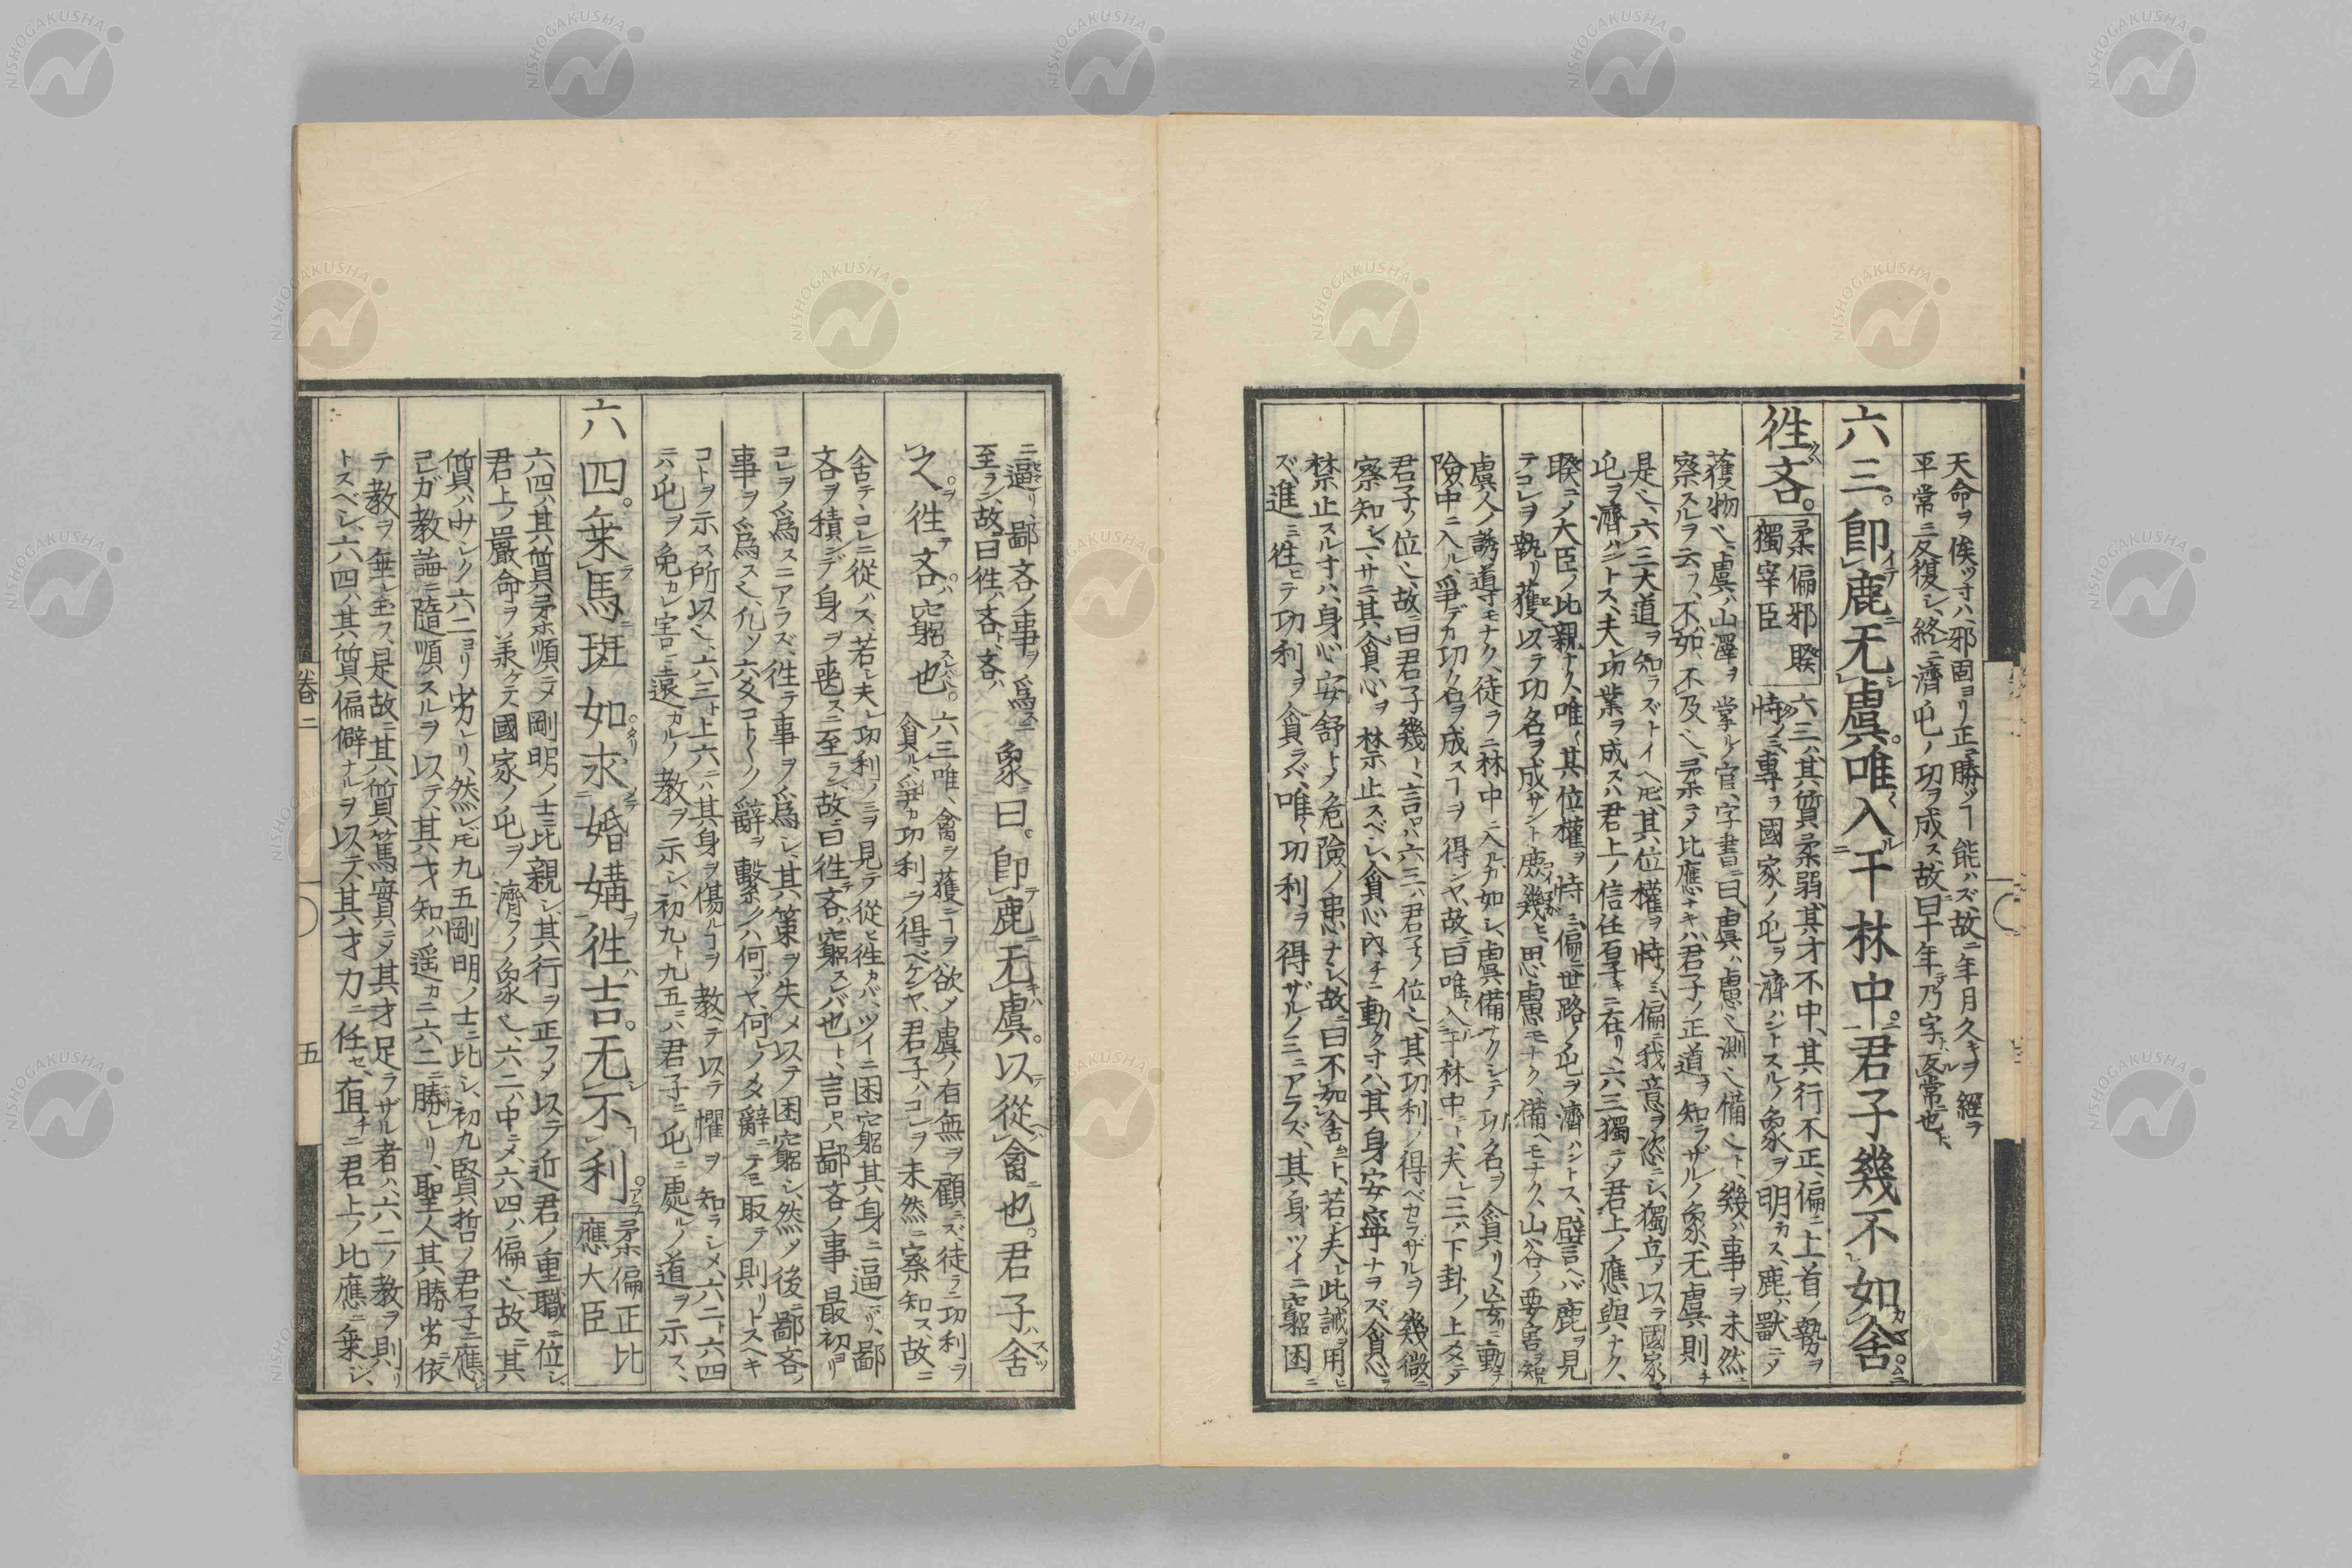 天命ヲ俟ツ寸ハ、邪固ヨリ正ニ勝ツヿ能ハズ故ニ年月久キヲ經テ
平常ニ反復シ、終ニ濟屯ノ功ヲ成ス、故ニ曰十年乃字、反常也ト、
六三。卽鹿无虞。唯入于林中。君子幾不如舍
徃吝。
柔偏邪睽
獨宰臣
六三ハ其質柔弱、其才不中、其行不正、偏ニ上首ノ勢ヲ
恃ノミ、專ラ國家ノ屯ヲ濟ハントスルノ象ヲ明カス、鹿ハ獸ニメ
獲物也、虞ハ山澤ヲ掌ル官、字書ニ曰虞ハ慮也測也備也ト、幾ハ事ヲ未然ニ
察スルヲ云フ、不如ハ不及也、柔ニメ比應ナキハ、君子ノ正道ヲ知ラザルノ象、无虞則チ
是也、六三大道ヲ知ラズトイヘ𪜈、其位權ヲ恃ノミ、偏ニ我意ヲ恣ニシ、獨立ノ以テ國家ノ
屯ヲ濟ハントス、夫レ功業ヲ成スハ君上ノ信任百事ニ在リ、六三獨ニメ君上ノ應與ナク、
睽ニノ大臣ノ比親ナク、唯其位權ヲ恃ミ、偏ニ世路ノ屯ヲ濟ハントス、譬ヘバ鹿ヲ見
テコレヲ執リ獲、以テ功名ヲ成サント庶幾ヒ、思慮モナク、備ヘモナク、山谷ノ要害ヲ知ル
虞人ノ誘導モナク、徒ラニ林中ニ入ルガ如シ、虞備ナクシテ功名ヲ貪リ、妄リニ動テ
險中ニ入ル、爭デカ功名ヲ成スヿヲ得ンヤ、故ニ曰唯入于林中ト、夫レ三ハ下卦ノ上爻ニテ
君子ノ位也、故ニ曰君子幾ト、言ハ六三ハ君子ノ位也、其功利ノ得ベカラザルヲ幾微ニ
察知シ、一サニ其貪心ヲ禁止スベシ、貪心內チニ動ク寸ハ、其身安寧ナラズ、貪心ヲ
禁止スル寸ハ、身心安舒ニメ危險ノ患ナシ、故ニ曰不如舍ト、若シ夫レ此誡ヲ用ヒ
ズ、進ミ徃ヒテ功利ヲ貪ラバ、唯功利ヲ得ザルノミニアラズ、其身ツイニ窮困ニ
ニ逼リ、鄙吝ノ事ヲ爲スニ
至ラン、故ニ曰徃ハ吝ト、吝ハ
象曰。卽鹿无虞。以從禽也。君子舍
之。徃吝。窮也。
六三唯、禽ヲ獲ニヿヲ欲メ虞ノ有無ヲ顧ニズ、徒ラニ功利ヲ
貪ル、爭カ功利ヲ得ベケンヤ、君子ハコレヲ未然ニ察知ス、故ニ
舍テコレニ從ハス、若シ夫レ功利ノミヲ見テ從ヒ徃カバ、ツイニ困窮其身ニ逼リ、鄙
吝ヲ積ンデ身ヲ喪スニ至ラン、故ニ曰徃テ吝ハ窮スレバ也ト、言ハ鄙吝ノ事最初ヨリ
コレヲ爲スニアラズ、徃テ事ヲ爲シ、其策ヲ失メ以テ困窮シ、然メ後ニ鄙吝ノ
事ヲ爲ス也、凡ソ六爻コトゴトク辭ヲ繫シハ何ゾヤ、何レノ爻辭ニテモ取テ則リトスヘキ
コトヲ示ス所以也、六三ト上六ニハ其身ヲ傷ルコヲ教ヘテ以テ懼ヲ知ラシメ、六二ト六四
ニハ屯ヲ免カレ害ニ遠カルノ教ヲ示シ、初九ト九五ニハ君子ニ屯ニ處ルノ道ヲ示ス、
六四。乗馬班如。求婚媾。徃吉。无不利。
柔偏正比
應大臣
六四ハ其質柔順ニメ剛明ノ士ニ比親シ、其行ヲ正フメ以テ近君ノ重職ニ位シ、
君上ノ嚴命ヲ羕ケテ國家ノ屯ヲ濟フノ象也、六二ハ中ニメ、六四ハ偏也、故ニ其
質ハ少シク六二ヨリ劣レリ、然レ𪜈九五剛明ノ士ニ比シ、初九賢哲ノ君子ニ應ジ
コレガ教諭ニ隨順スルヲ以テ、其才知ハ遥カニ六二ニ勝レリ、聖人其勝劣ニ依
テ教ヲ垂レ玉フ、是故ニ其質篤實ニメ其才足ラザル者ハ、六二ノ教ヲ則リ
トスベシ、六四ハ其質偏僻ナルヲ以テ、其才力ニ任セ、直チニ君上ノ比應ニ乗シ、
卷二
五
NISHOGAKUSHA